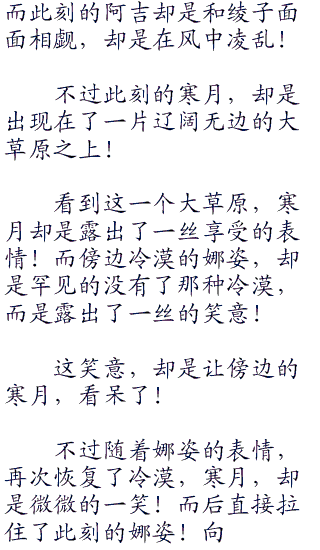 而此刻的阿吉却是和绫子面
面相觑，却是在风中凌乱！
不过此刻的寒月，却是
出现在了一片辽阔无边的大
草原之上！
看到这一个大草原，寒
月却是露出了一丝享受的表
情！而傍边冷漠的娜姿，却
是罕见的没有了那种冷漠，
而是露出了一丝的笑意！
这笑意，却是让傍边的
寒月，看呆了！
不过随着娜姿的表情，
再次恢复了冷漠，寒月，却
是微微的一笑！而后直接拉
住了此刻的娜姿！向